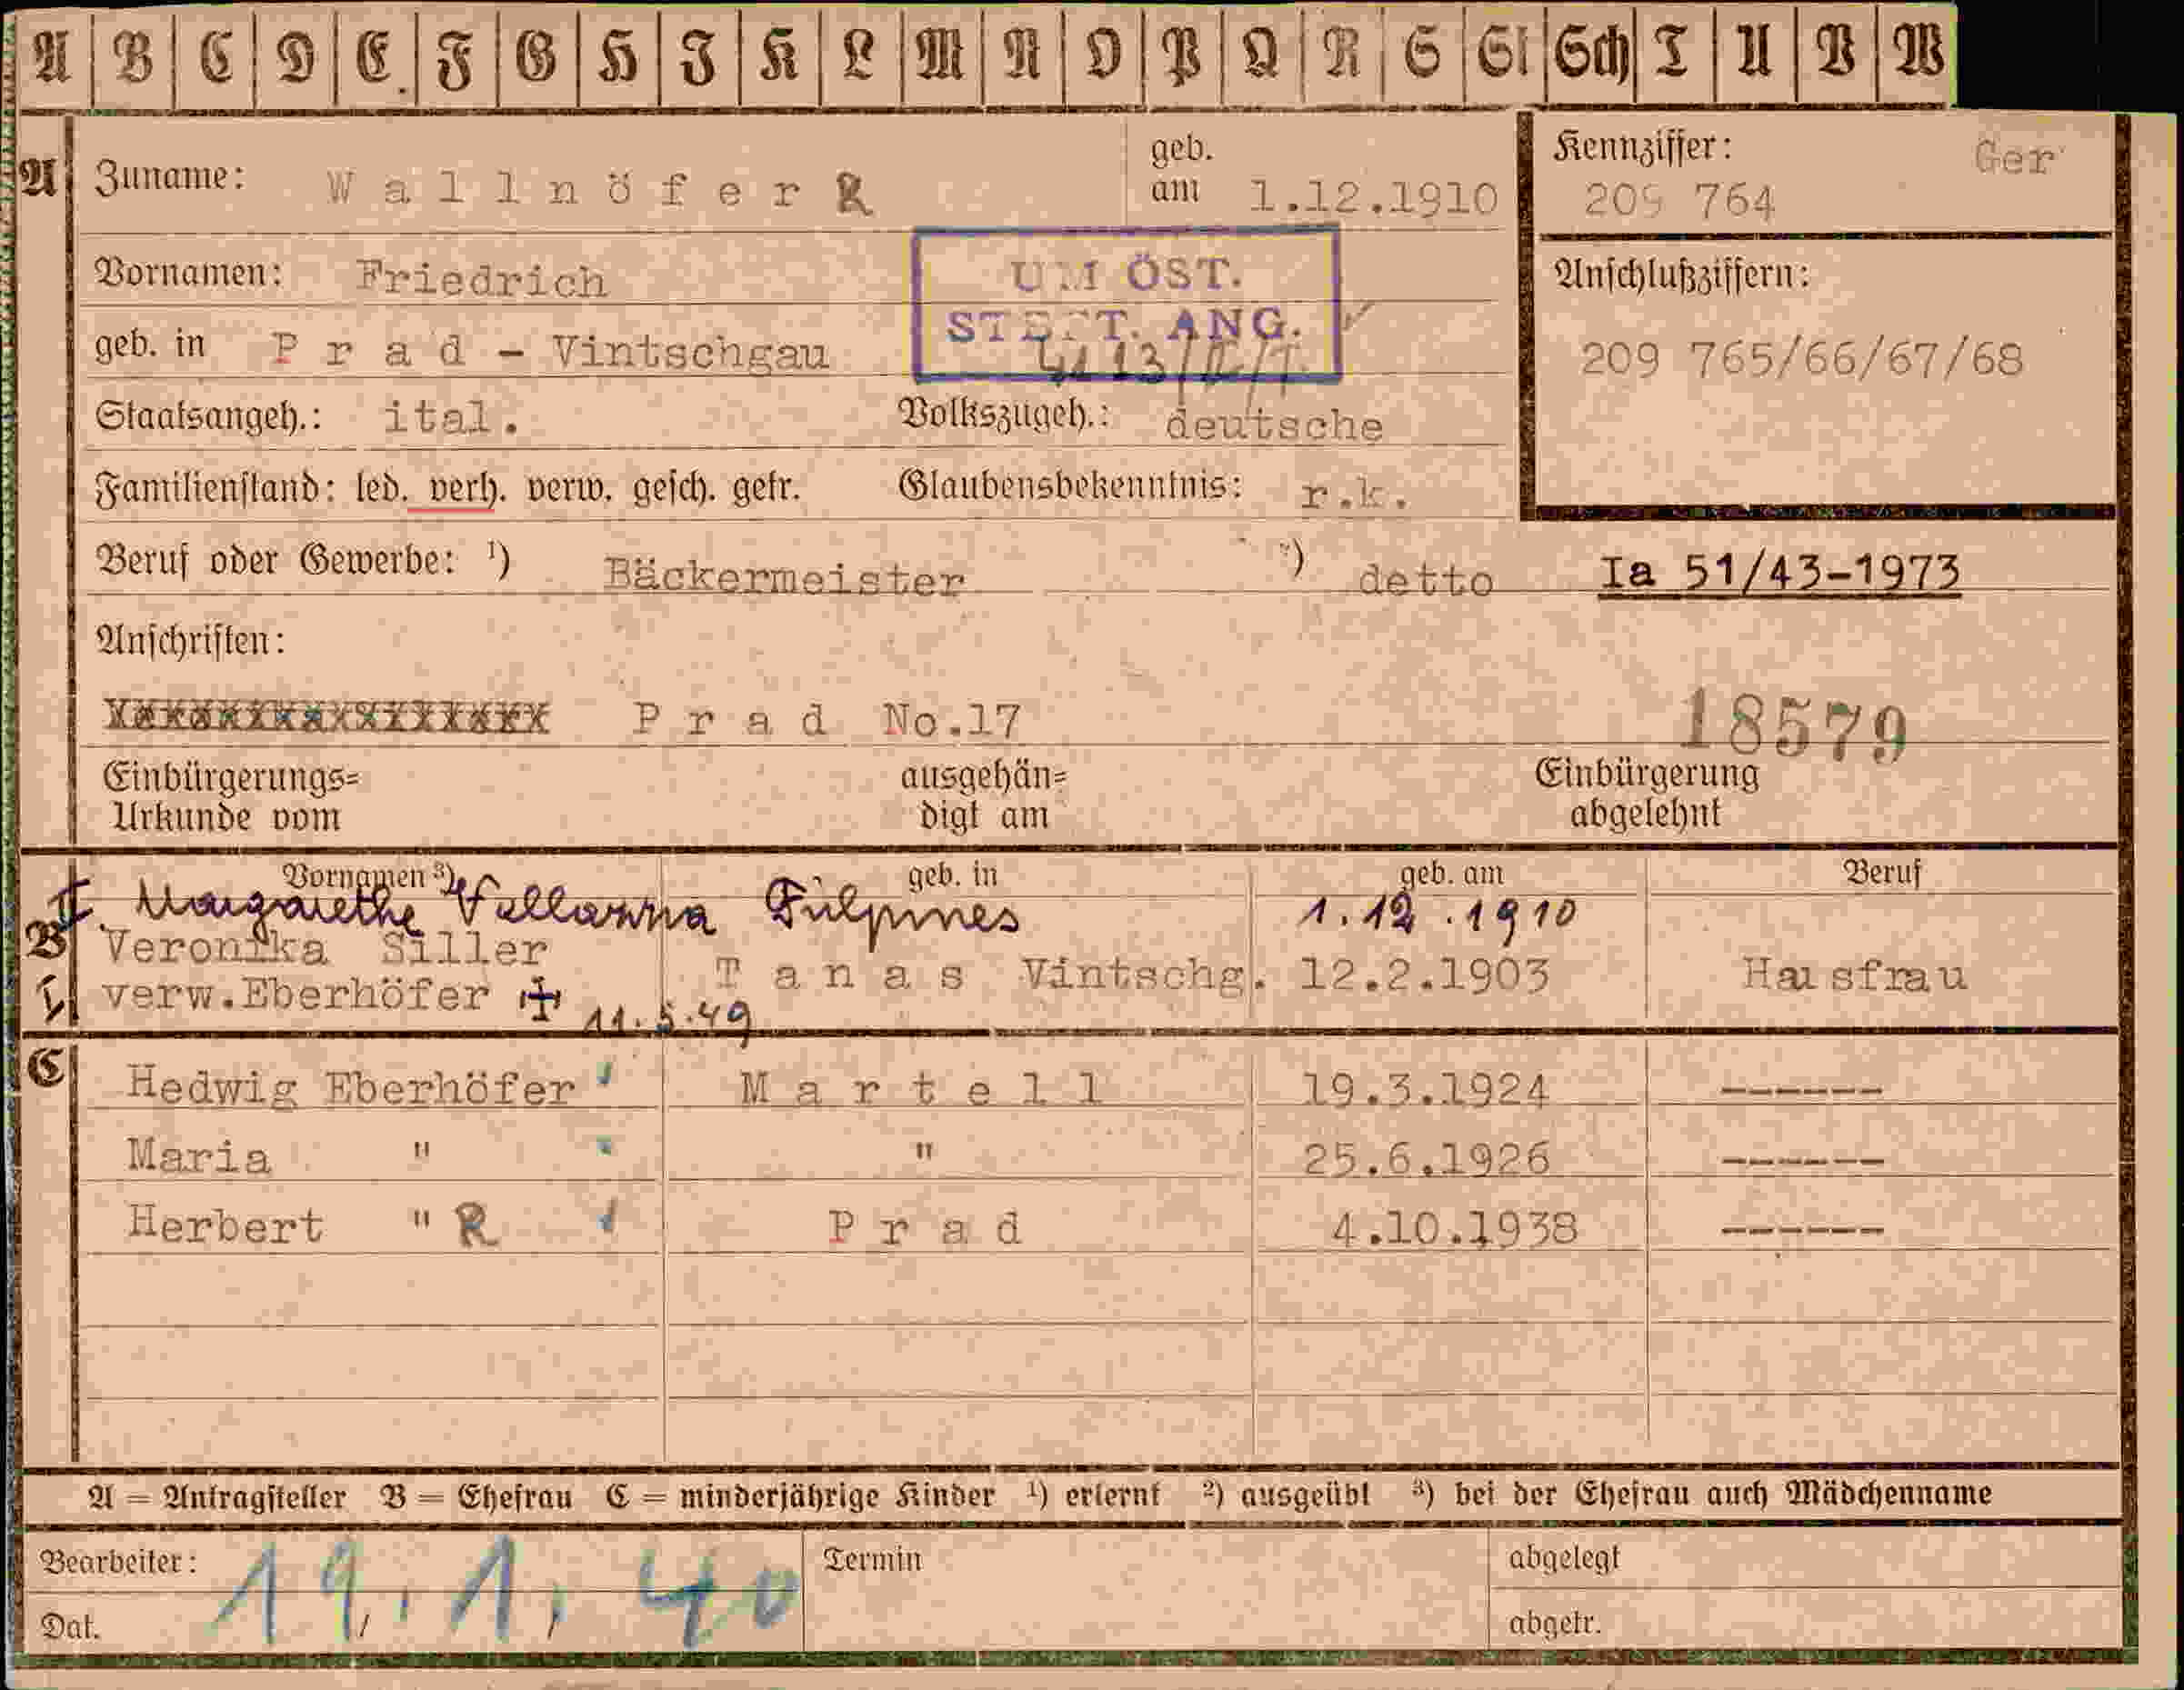 A B C D E F G H I K L M N O P Q R S St Sch T U V W
A Zuname: Wallnöfer R geb. am 1.12.1910
Kennziffer: Ger
209 764
Vornamen: Friedrich
UM ÖST.
STBFT. ANG.
Anschlußziffern:
209 765/66/67/68
geb. in Prad - Vintschgau
Staatsangeh.: ital. Volkszugeh.: deutsche
Familienstand: led. verh. verw. gesch. getr. Glaubensbekenntnis: r.k.
Beruf oder Gewerbe: ¹) Bäckermeister ²) detto Ia 51/43-1973
Anschriften:
Prad No.17 18579
Einbürgerungs= ausgehän= Einbürgerung
Urkunde vom digt am abgelehnt
Vornamen ³) geb. in geb. am Beruf
II. Margarethe Fulpmes 1.12.1910
B Veronika Siller
I. verw.Eberhöfer ✝ 11.5.49 Tanas Vintschg. 12.2.1903 Hausfrau
C Hedwig Eberhöfer Martell 19.3.1924 ------
Maria " " 25.6.1926 ------
Herbert " R Prad 4.10.1938 ------
A = Antragsteller B = Ehefrau C = minderjährige Kinder ¹) erlernt ²) ausgeübt ³) bei der Ehefrau auch Mädchenname
Bearbeiter: Termin abgelegt
19.1.40
Dat. abgetr.